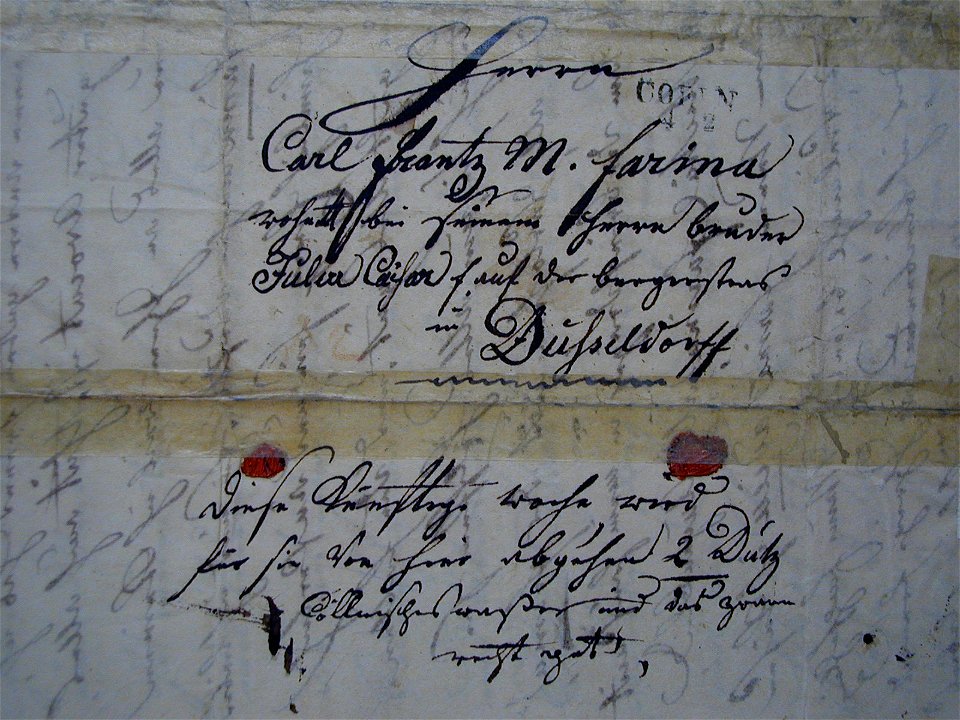 Herrn
COELN
2
Carl Frantz M. farina
wohnt bei seinem Herrn bruder
Julius Cäsar f. auf der bergerstras
in Düsseldorff
diese künftige woche wird
für sie von hier abgehen 2 Dutz
Cöllnisches waßer und das zwarn
recht gut,